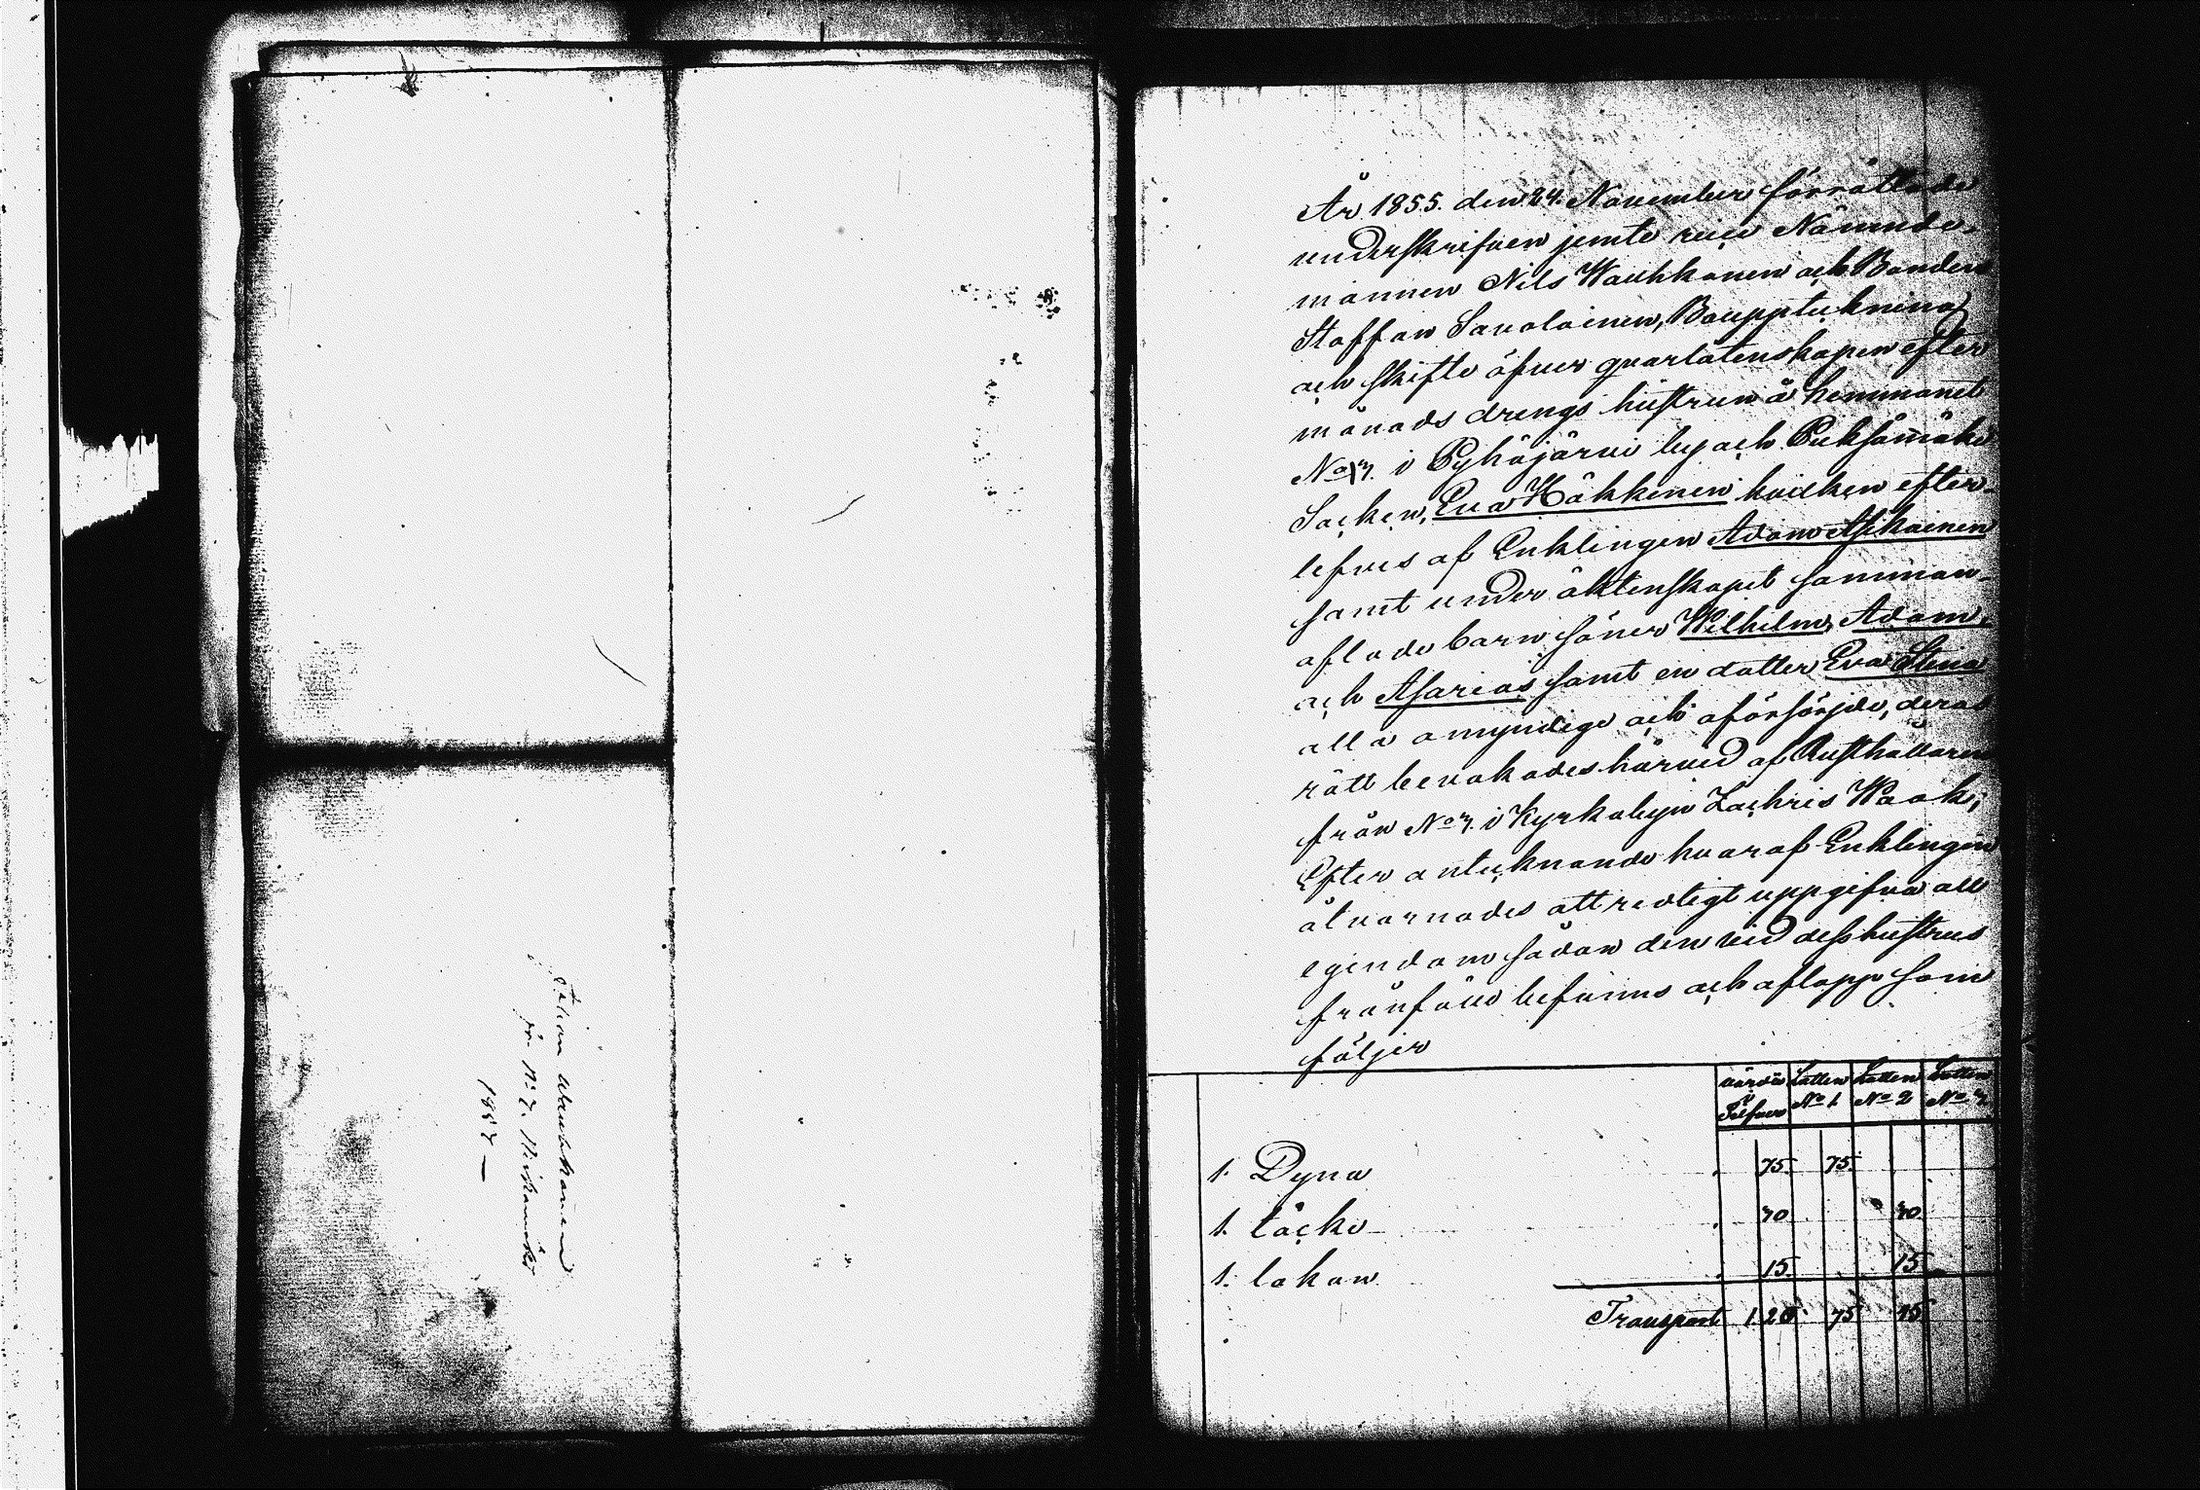 Johan Wauhkonen
för No 7. Niskamäki
1857 —
År 1855. den 24. November förrättade
underskrifven jemte Nämnde-
mannen Nils Wauhkonen och Bonden
Staffan Savolainen, Bouppteckning
och skifte öfver qvarlåtenskapen efter
månads drengs hustrun å hemmanet
No 7. i Pyhäjärvi by och Pieksämäki
Socken, Eva Häkkinen hvilken efter-
lefves af Enklingen Adam Asikainen
samt under äktenskapet samman-
aflade barn söner Wilhelm, Adam,
och Asarias samt en dotter Eva Stina
alla omyndige och oförsörjde, deras
rätt bevakades härvid af Rusthållaren
från No 7. i Kyrkobyn Zachris Waak;
Efter antecknande hvaraf Enklingen
åtvarnades att redligt uppgifva all
egendom sådan den vid dess hustrus
frånfälle befanns och aflopp som
följer
värde Lotten Lotten Lotten
Silfver No 1 No 2 No 3
1. Dyna 75. 75.
1. täcke 30 30
1. lakan 15. 15
Transport 1 20 75 45